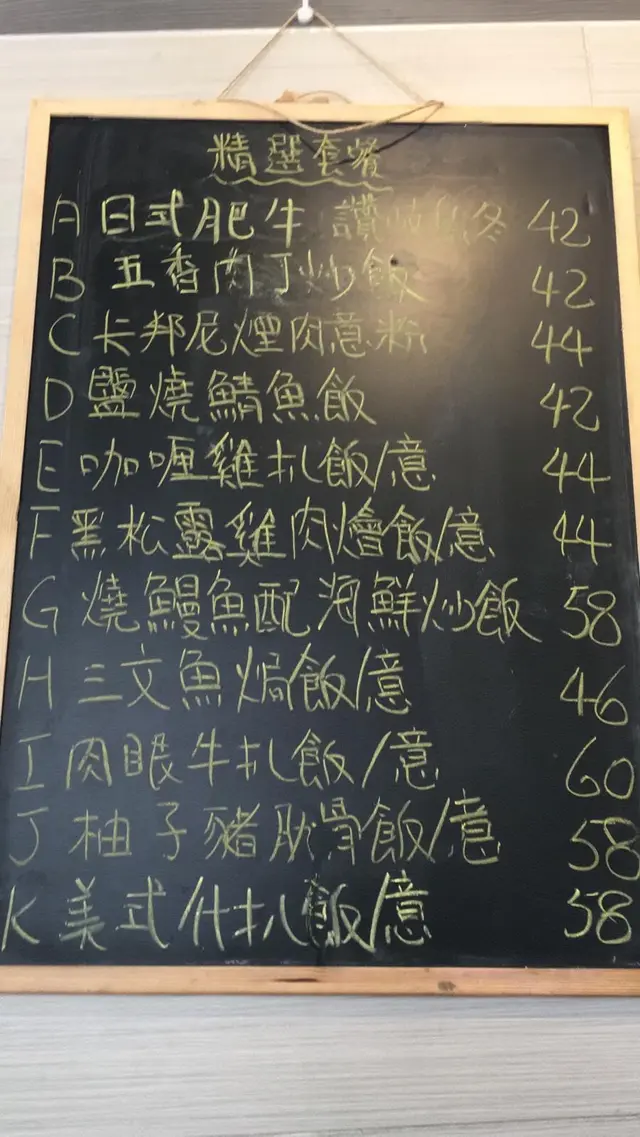 精選套餐
A 日式肥牛 讚岐烏冬 42
B 五香肉丁炒飯 42
C 卡邦尼煙肉意粉 44
D 鹽燒鯖魚飯 42
E 咖喱雞扒飯/意 44
F 黑松露雞肉燴飯/意 44
G 燒鰻魚配海鮮炒飯 58
H 三文魚焗飯/意 46
I 肉眼牛扒飯/意 60
J 柚子豬肋骨飯/意 58
K 美式什扒飯/意 58